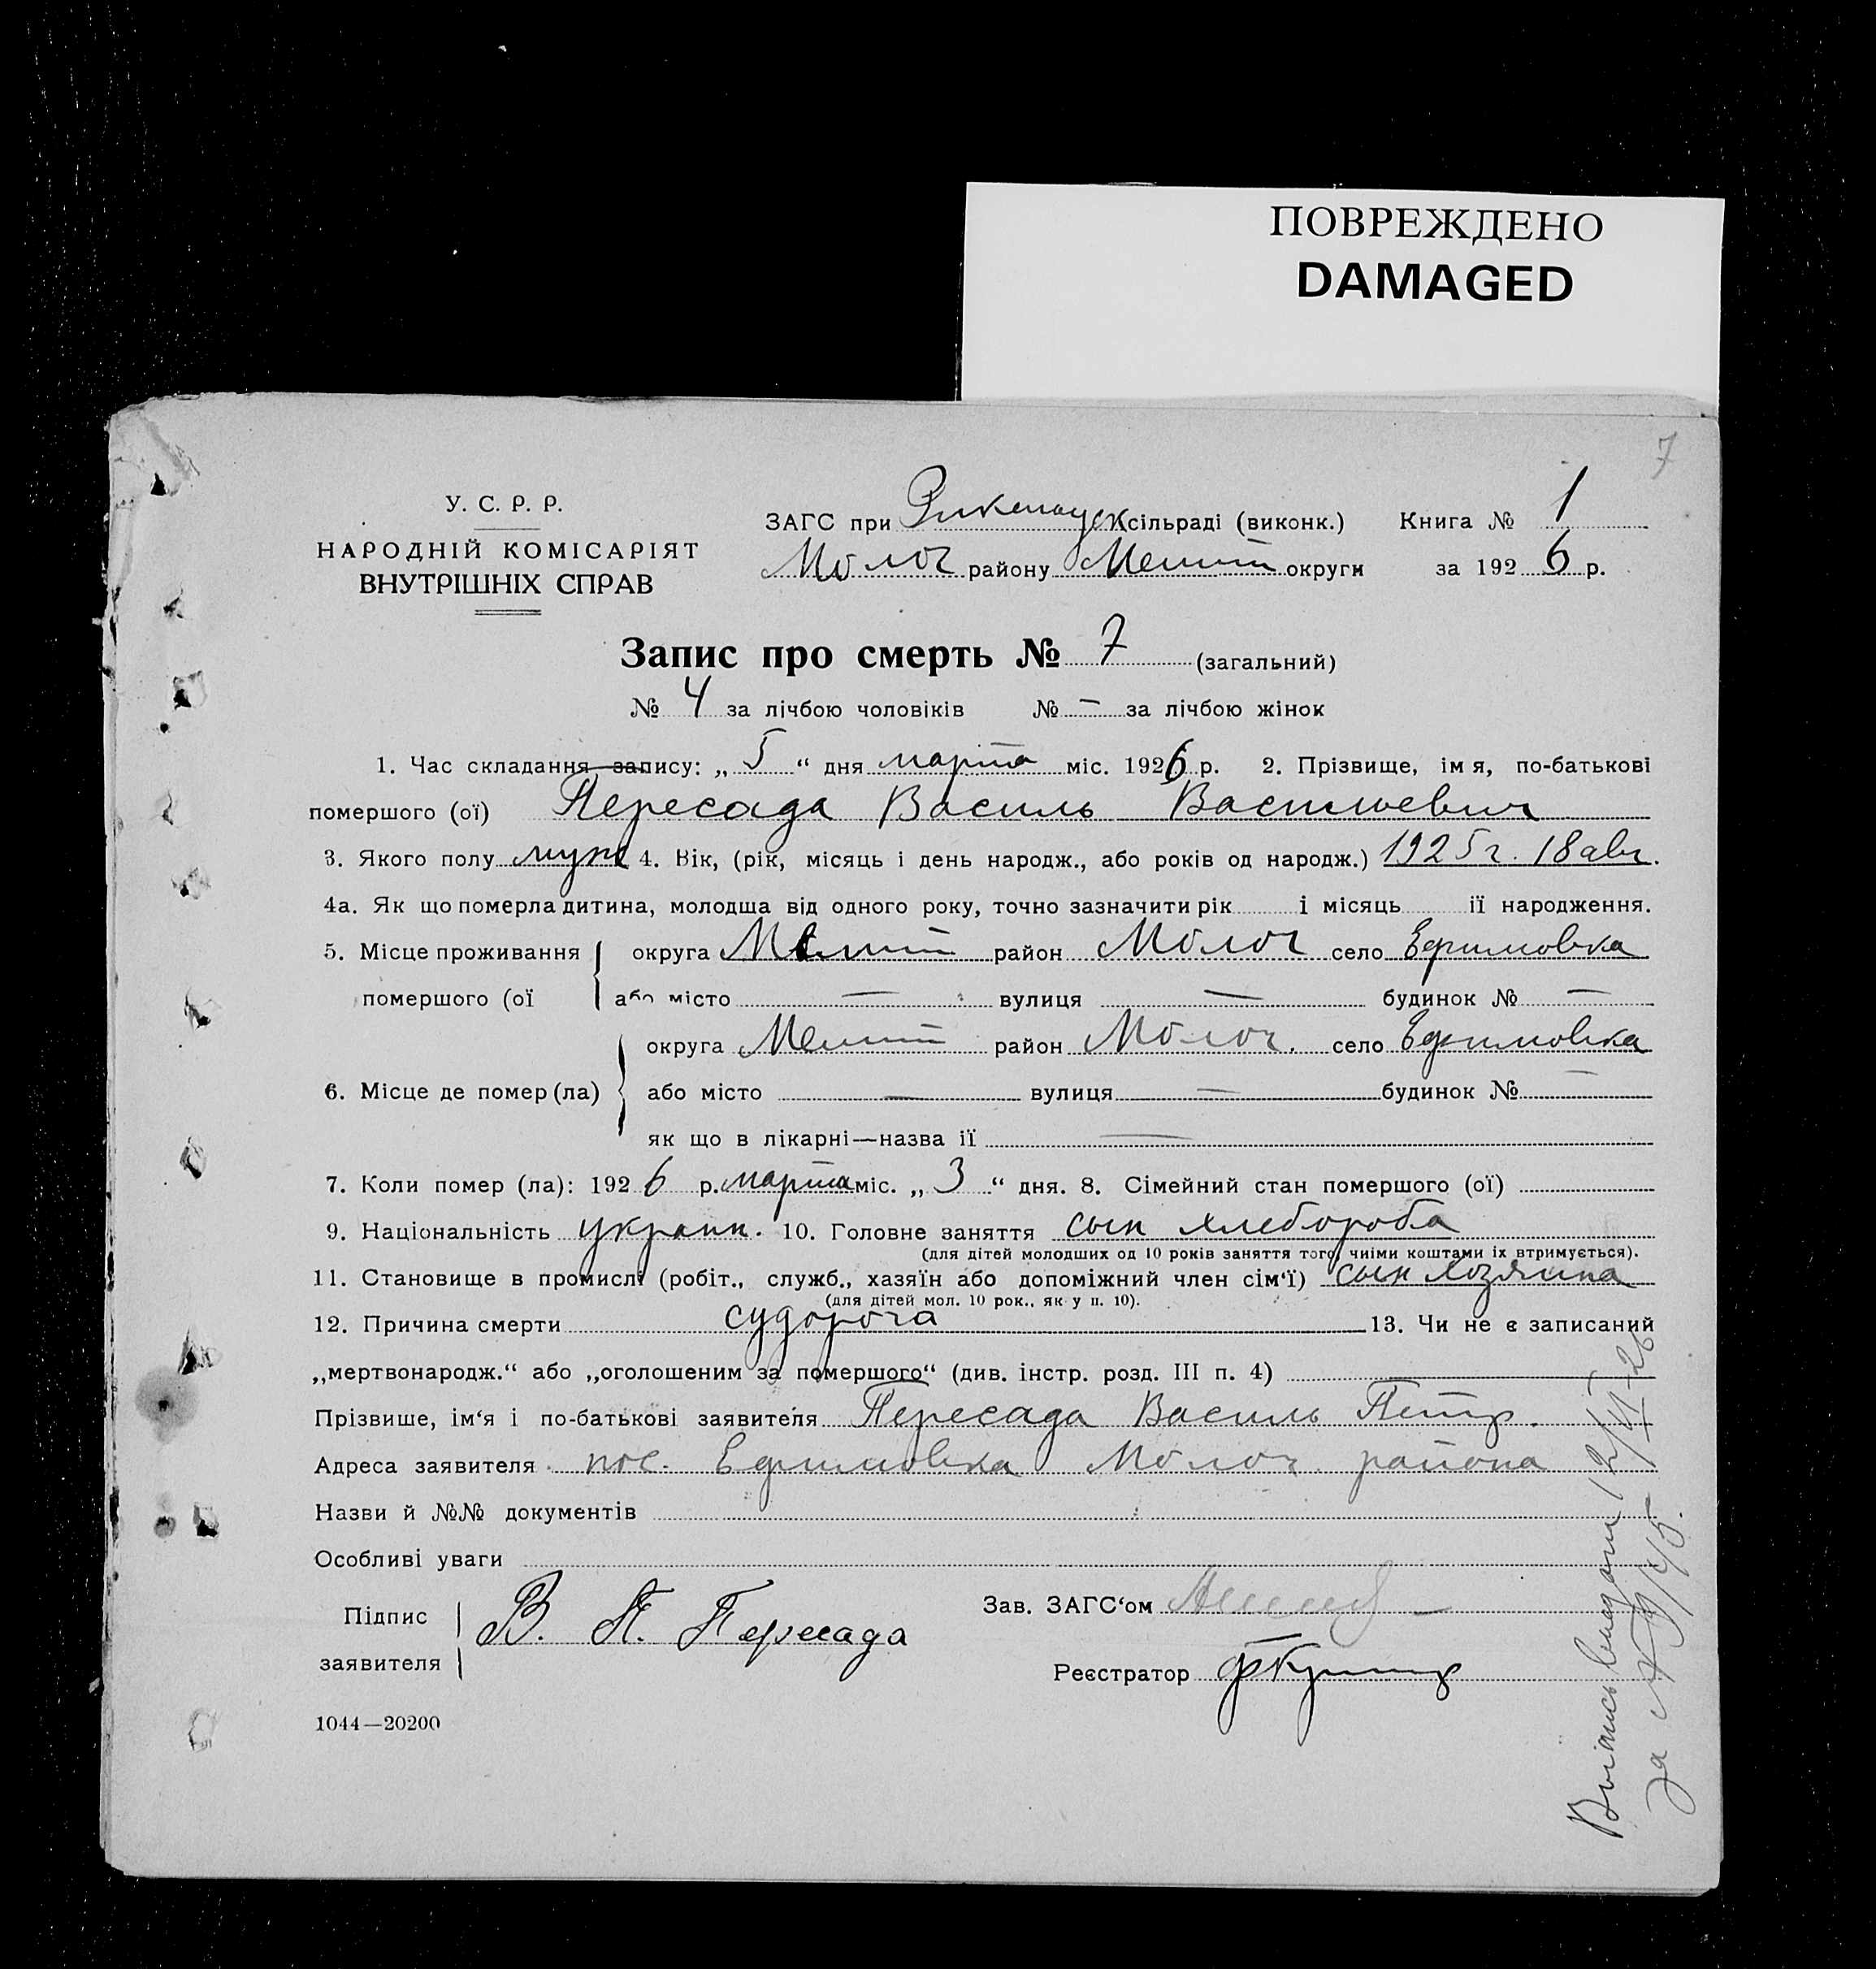 ПОВРЕЖДЕНО
DAMAGED
7
У. С. Р. Р.
НАРОДНІЙ КОМІСАРІЯТ
ВНУТРІШНІХ СПРАВ
ЗАГС при сільраді (виконк.) Книга № 1
Молоч району Мелит округи за 1926 р.
Запис про смерть № 7 (загальний)
№ 4 за лічбою чоловіків № — за лічбою жінок
1. Час складання запису: „5“ дня марта міс. 1926 р. 2. Прізвище, імя, по-батькові
помершого (ої) Пересада Василь Васильевич
3. Якого полу муж 4. Вік, (рік, місяць і день народж., або років од народж.) 1925 г. 18 авг.
4а. Як що померла дитина, молодша від одного року, точно зазначити рік і місяць її народження.
5. Місце проживання округа Мелит район Молоч село Ефимовка
помершого (ої або місто — вулиця — будинок № —
округа Мелит район Молоч. село Ефимовка
6. Місце де помер (ла) або місто — вулиця — будинок № —
як що в лікарні—назва її —
7. Коли помер (ла): 1926 р. марта міс. „3“ дня. 8. Сімейний стан помершого (ої)
9. Національність украин. 10. Головне заняття сын хлебороба
(для дітей молодших од 10 років заняття того, чиїми коштами їх втримується).
11. Становище в промислі (робіт., служб., хазяїн або допоміжний член сім‘ї) сын хозяина
(для дітей мол. 10 рок., як у п. 10).
12. Причина смерти судорога 13. Чи не є записаний
„мертвонародж.“ або „оголошеним за помершого“ (див. інстр. розд. III п. 4)
Прізвише, ім‘я і по-батькові заявителя Пересада Василь Петр.
Адреса заявителя пос. Ефимовка Молоч. района
Назви й №№ документів
Особливі уваги
Підпис
заявителя В. П. Пересада
Зав. ЗАГС‘ом
Реєстратор
1044—20200
Выпись выдана
за №